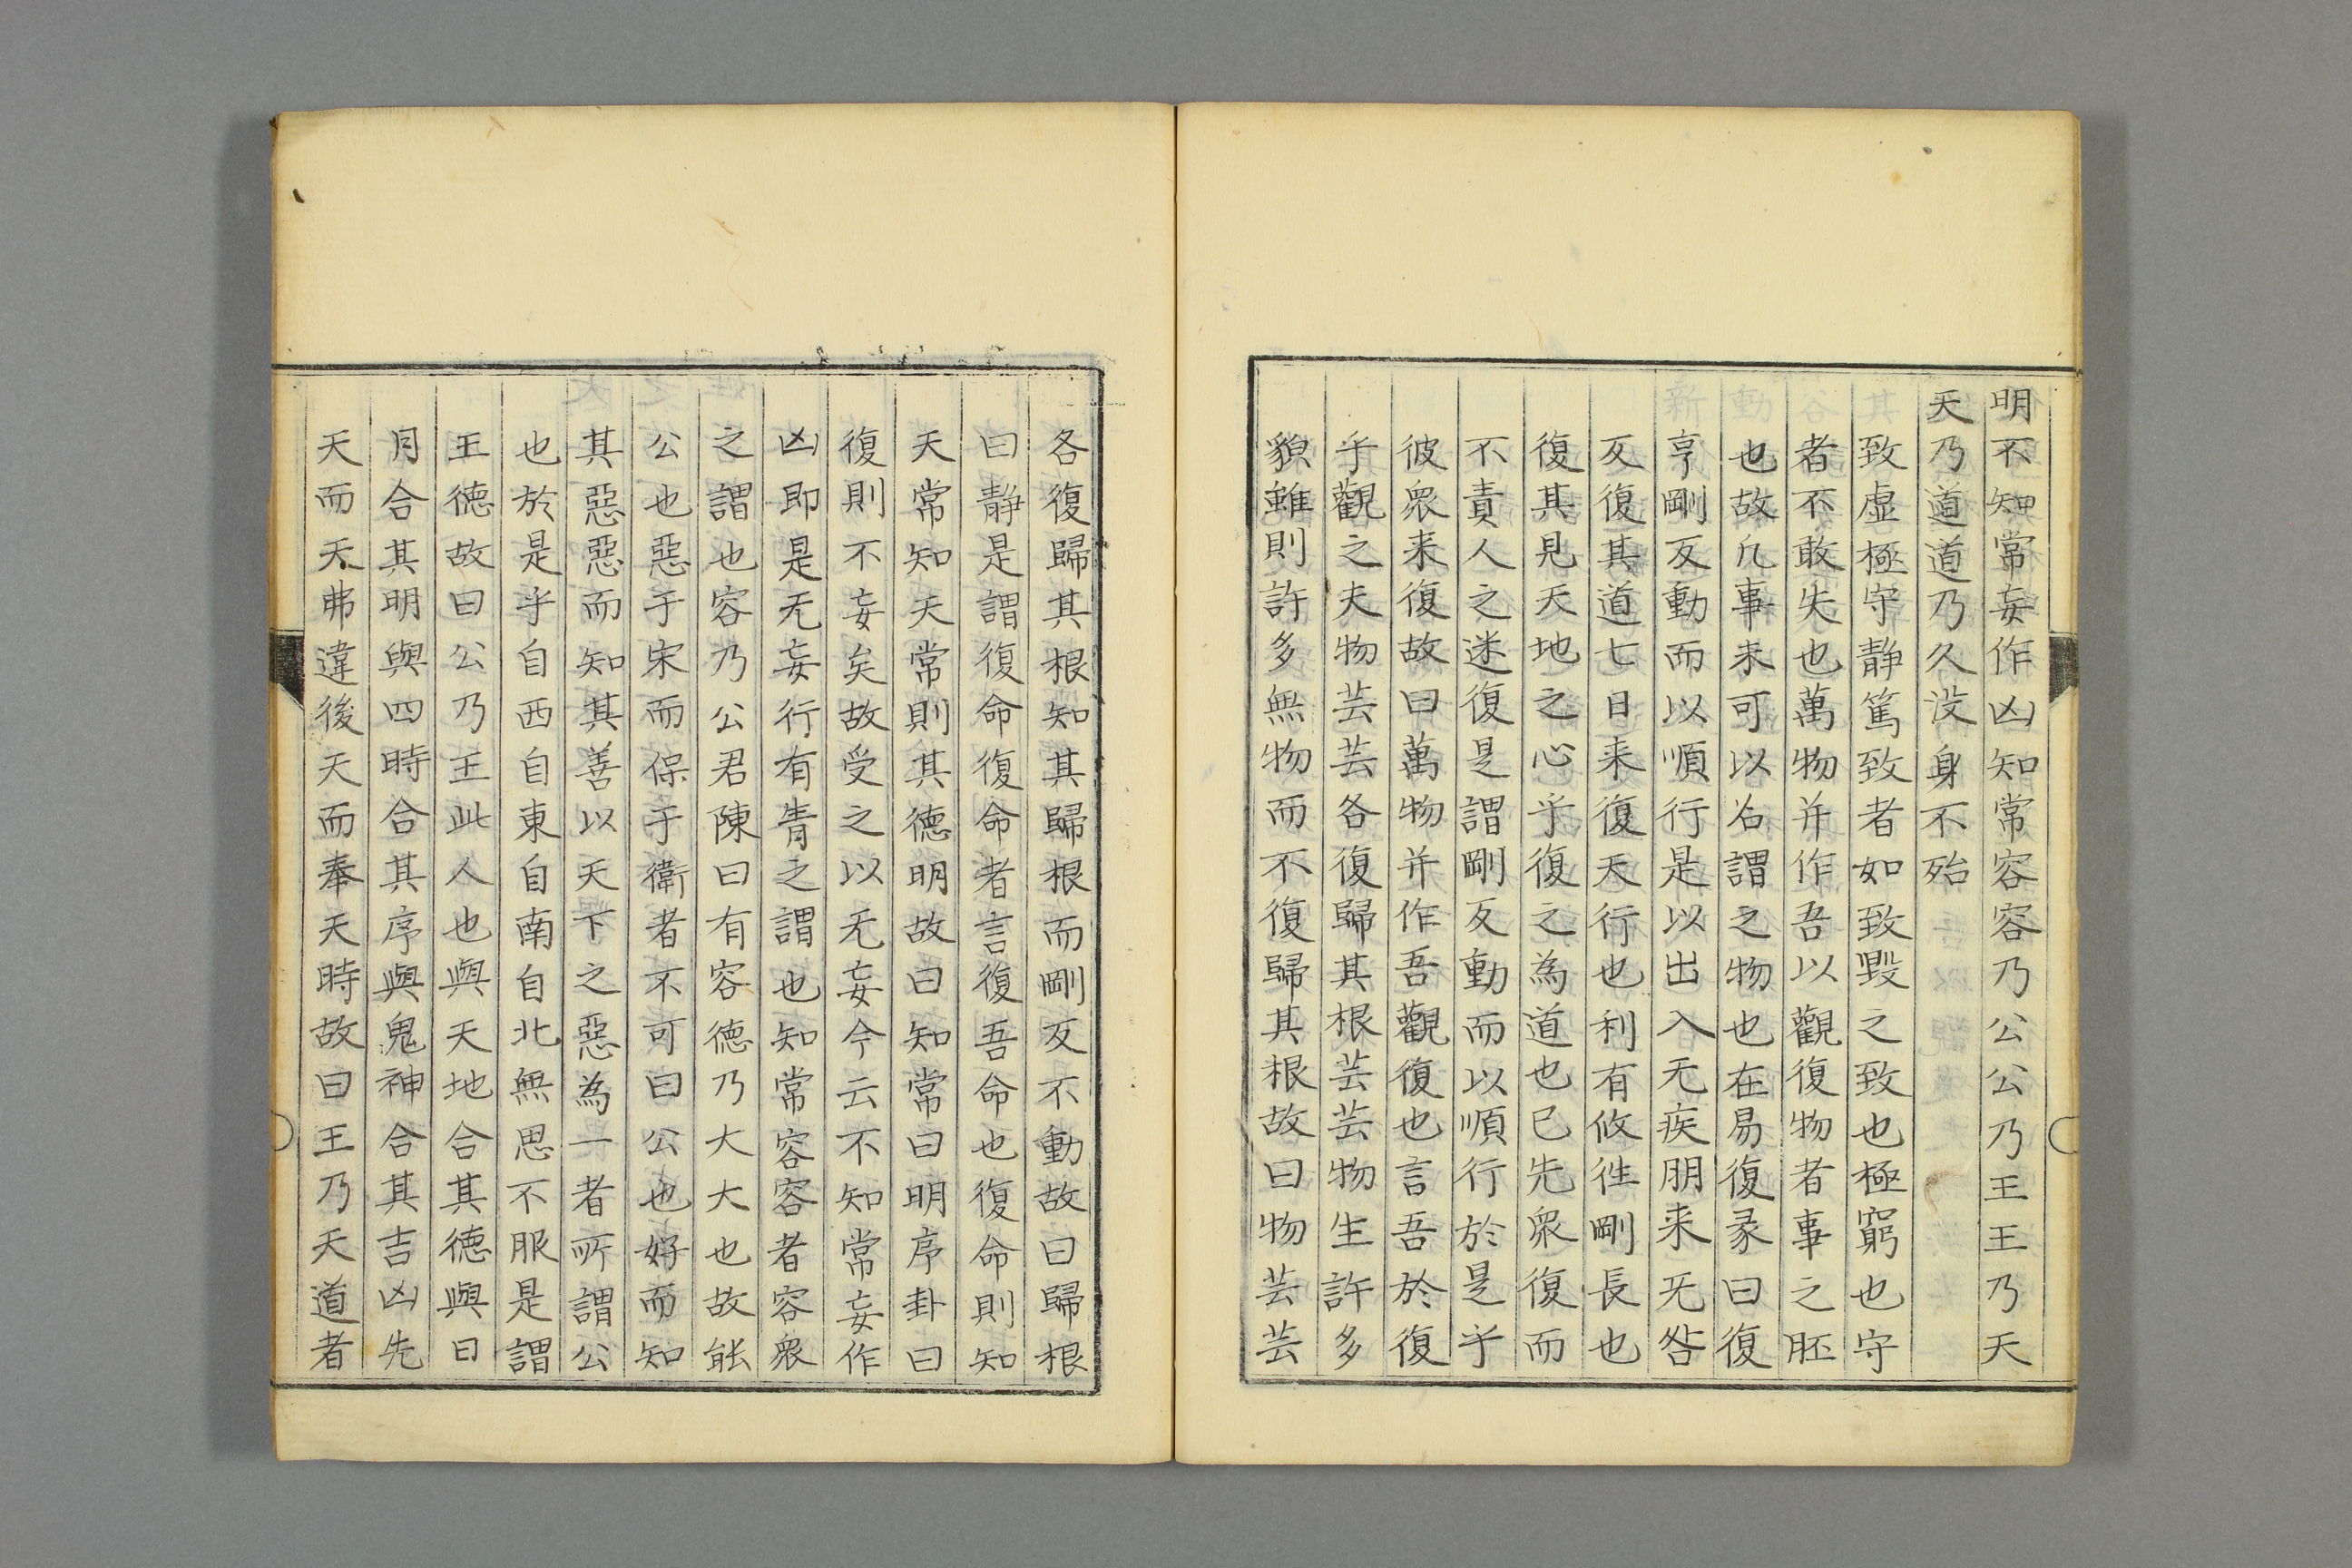 明不知常妄作凶知常容容乃公公乃王王乃天
天乃道道乃久没身不殆
致虚極守静篤致者如致毀之致也極窮也守
者不敢失也萬物并作吾以觀復物者事之胚
也故凡事未可以名謂之物也在易復彖曰復
亨剛反動而以順行是以出入无疾朋来无咎
反復其道七日来復天行也利有攸徃剛長也
復其見天地之心乎復之為道也已先衆復而
不責人之迷復是謂剛反動而以順行於是乎
彼衆来復故曰萬物并作吾觀復也言吾於復
乎觀之夫物芸芸各復歸其根芸芸物生許多
貌雖則許多無物而不復歸其根故曰物芸芸
各復歸其根知其歸根而剛反不動故曰歸根
曰静是謂復命復命者言復吾命也復命則知
天常知天常則其德明故曰知常曰明序卦曰
復則不妄矣故受之以无妄今云不知常妄作
凶即是无妄行有眚之謂也知常容容者容衆
之謂也容乃公君陳曰有容德乃大大也故能
公也惡于宋而保于衛者不可曰公也好而知
其惡惡而知其善以天下之惡為一者所謂公
也於是乎自西自東自南自北無思不服是謂
王德故曰公乃王此人也與天地合其德與日
月合其明與四時合其序與鬼神合其吉凶先
天而天弗違後天而奉天時故曰王乃天道者